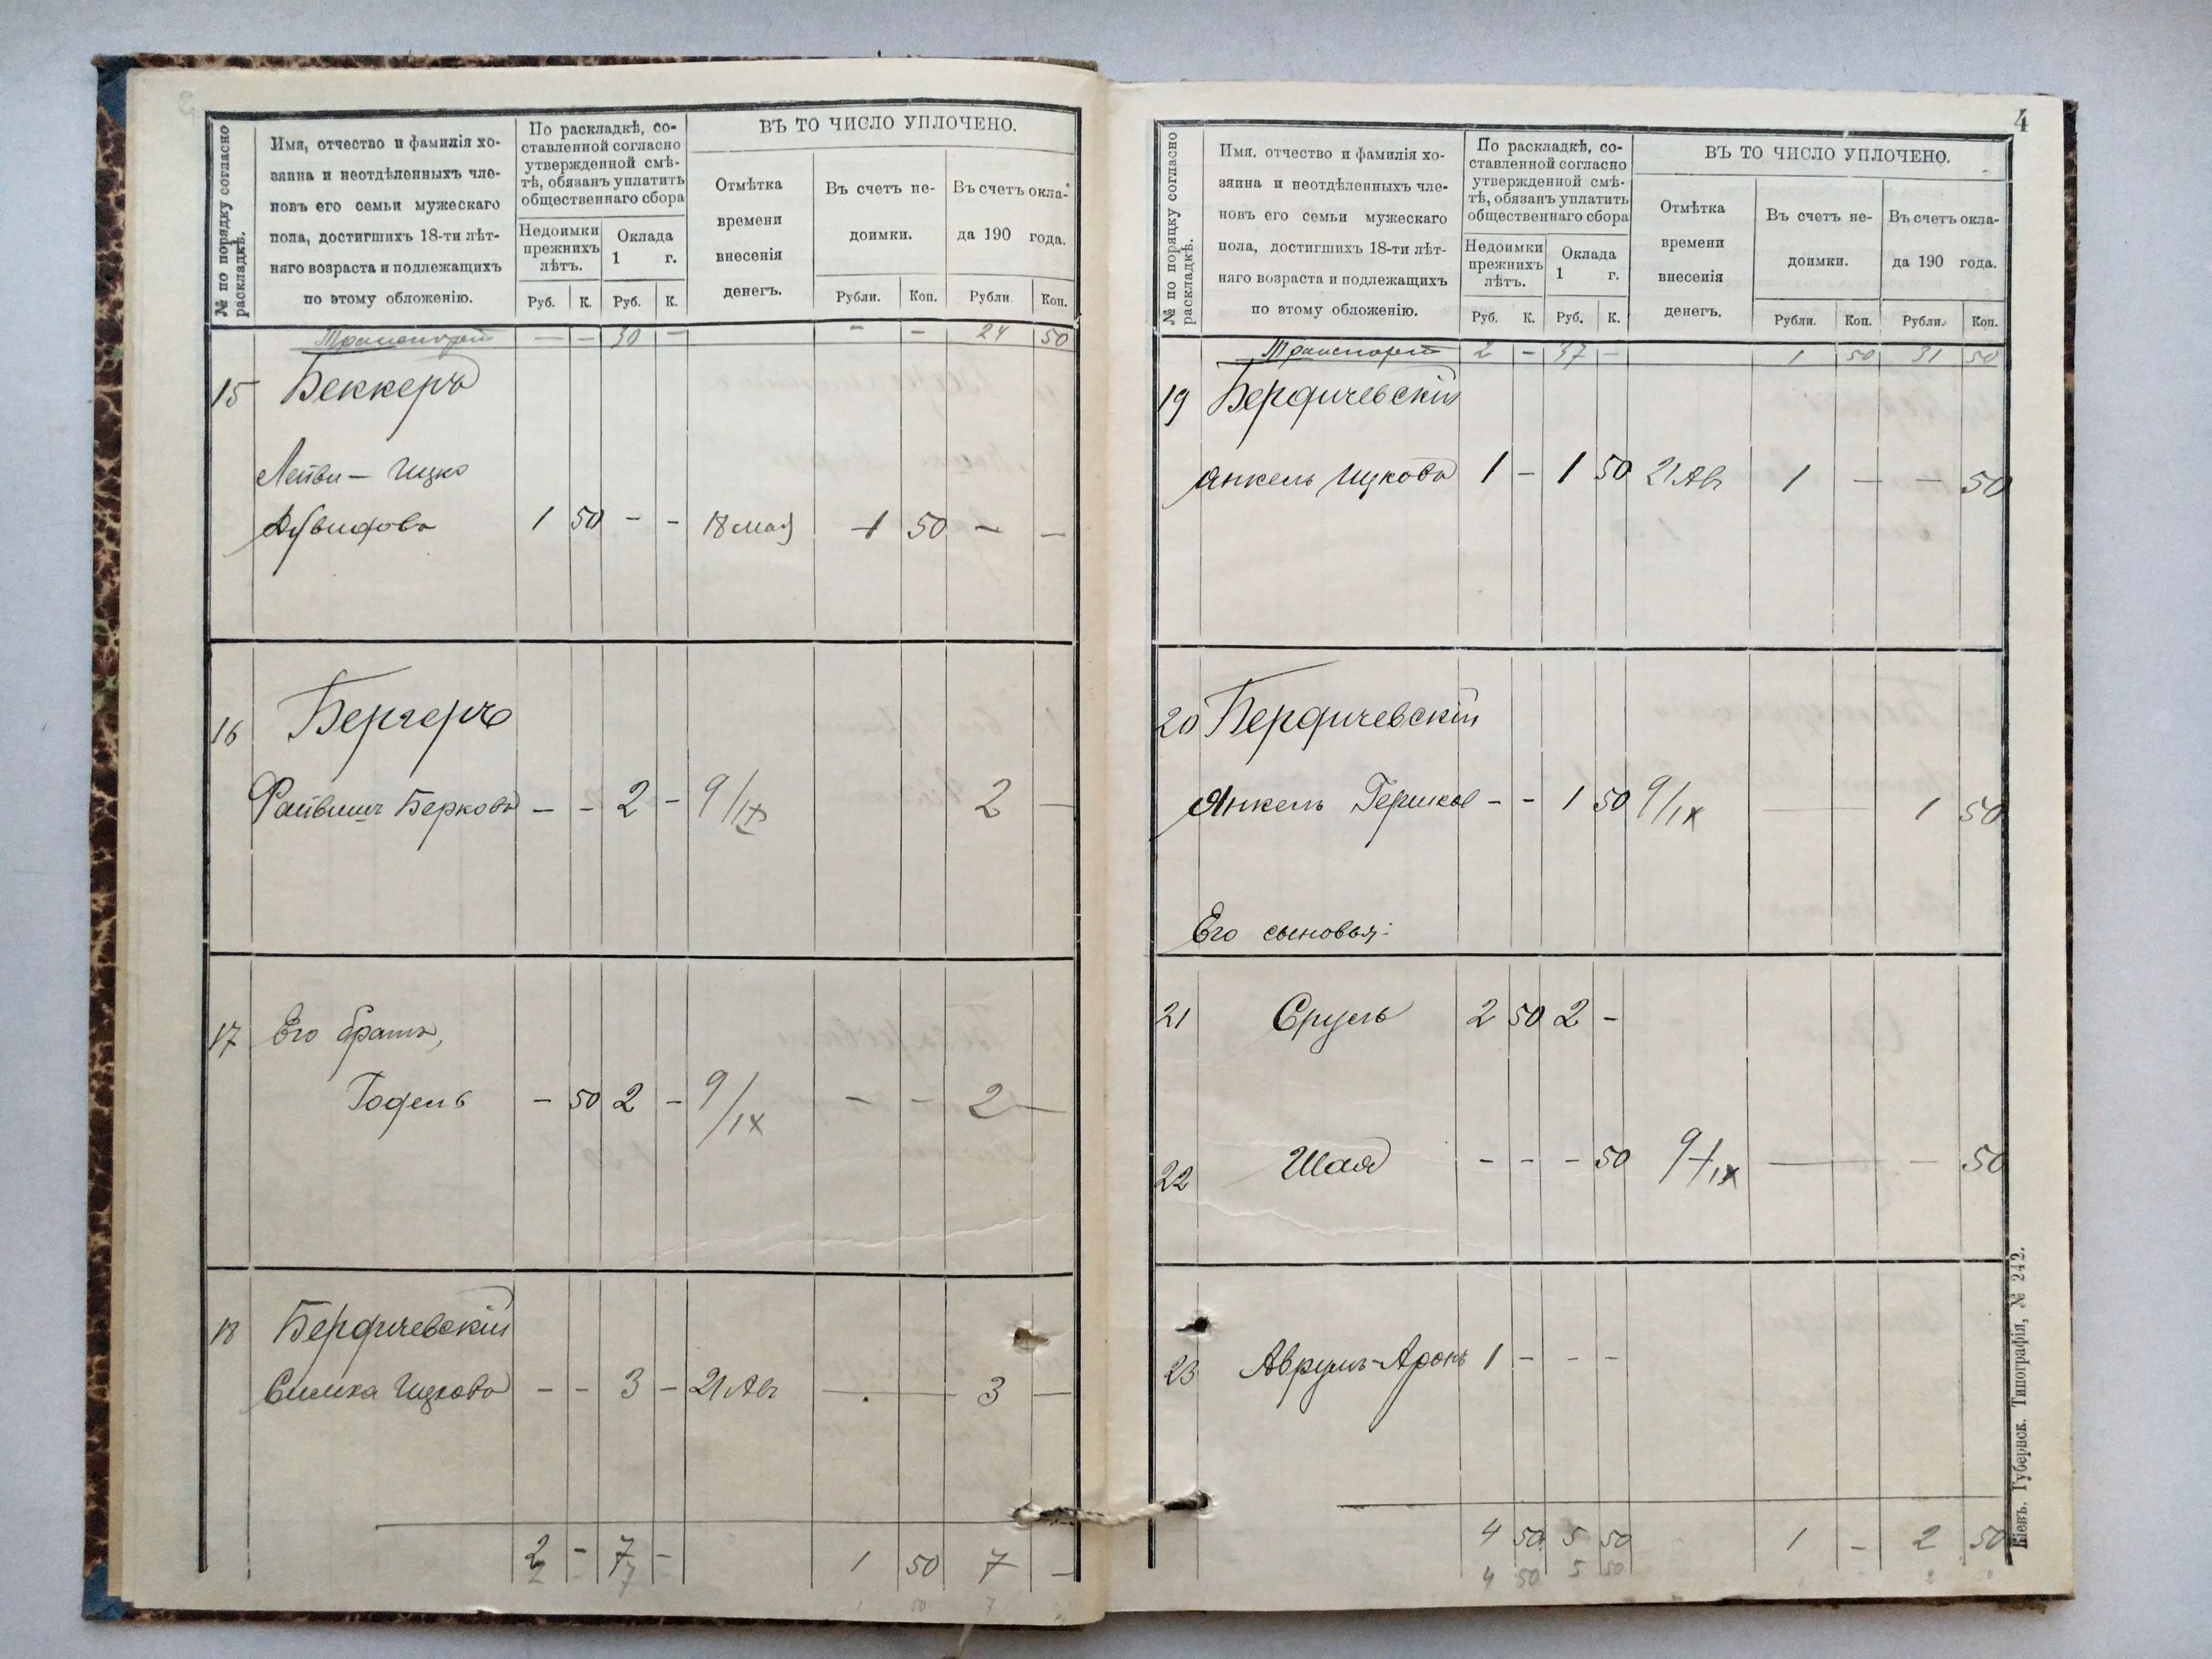 № по порядку согласно раскладкѣ.
Имя, отчество и фамилія хо-
зяина и неотдѣленныхъ чле-
новъ его семьи мужескаго
пола, достигшихъ 18-ти лѣт-
няго возраста и подлежащихъ
по этому обложенію.
По раскладкѣ, со-
ставленной согласно
утвержденной смѣ-
тѣ, обязанъ уплатить
общественнаго сбора
Недоимки прежнихъ лѣтъ.
Оклада 1 г.
Руб. К. Руб. К.
ВЪ ТО ЧИСЛО УПЛОЧЕНО.
Отмѣтка
времени
внесенія
денегъ.
Въ счетъ не-
доимки.
Въ счетъ окла-
да 190 года.
Рубли. Коп. Рубли Коп.
Транспортъ — — 30 — — — 24 50
15 Беккеръ
Лейви – Ицко
Дувидовъ 1 50 - - 18 мая 1 50 — —
16 Бергеръ
Файвишъ Берковъ — - 2 - 9/IX 2 —
17 Его братъ,
Годель - 50 2 - 9/IX — — 2 —
18 Бердичевскій
Симха Ицковъ - - 3 - 21 Авг — — 3 —
2 - 7 - 1 50 7 —
2 - 7
1 50 7
4
№ по порядку согласно раскладкѣ.
Имя, отчество и фамилія хо-
зяина и неотдѣленныхъ чле-
новъ его семьи мужескаго
пола, достигшихъ 18-ти лѣт-
няго возраста и подлежащихъ
по этому обложенію.
По раскладкѣ, со-
ставленной согласно
утвержденной смѣ-
тѣ, обязанъ уплатить
общественнаго сбора
Недоимки прежнихъ лѣтъ.
Оклада 1 г.
Руб. К. Руб. К.
ВЪ ТО ЧИСЛО УПЛОЧЕНО.
Отмѣтка
времени
внесенія
денегъ.
Въ счетъ не-
доимки.
Въ счетъ окла-
да 190 года.
Рубли. Коп. Рубли. Коп.
Транспортъ 2 - 37 - 1 50 31 50
19 Бердичевскій
Анкель Ицковъ 1 - 1 50 21 Авг 1 — — 50
20 Бердичевскій
Янкель Гершков - - 1 50 9/IX — 1 50
Его сыновья:
21 Сруль 2 50 2 -
22 Шая - - - 50 9/IX — — 50
23 Аврумъ-Аронъ 1 - - -
4 50 5 50 1 - 2 50
4 50 5 50 2
Кіевъ. Губернск. Типографія, № 242.